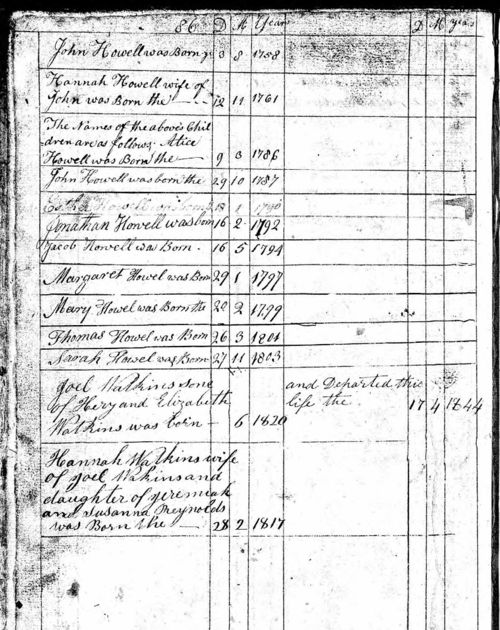 86 D M Years D M years
John Howell was Born ye 3 8 1758
Hannah Howell wife of
John was Born the 12 11 1761
The Names of the above Chil
dren are as follows. Alice
Howell was Born the 9 3 1786
John Howell was born the 29 10 1787
Esther Howell 1
Jonathan Howell was born 16 2 1792
Jacob Howell was Born. 16 5 1794
Margaret Howel was Born 29 1 1797
Mary Howel was Born the 20 2 1799
Thomas Howel was Born 26 3 1801
Sarah Howel was Born 27 11 1803
Joel Watkins sone and Departed this
of Hery and Elizabeth life the. 17 4 1844
Watkins was born 6 1820
Hannah Watkins wife
of Joel Wakins and
daughter of Jeremiah
and Susanna Reynolds
was Born the 28 2 1817